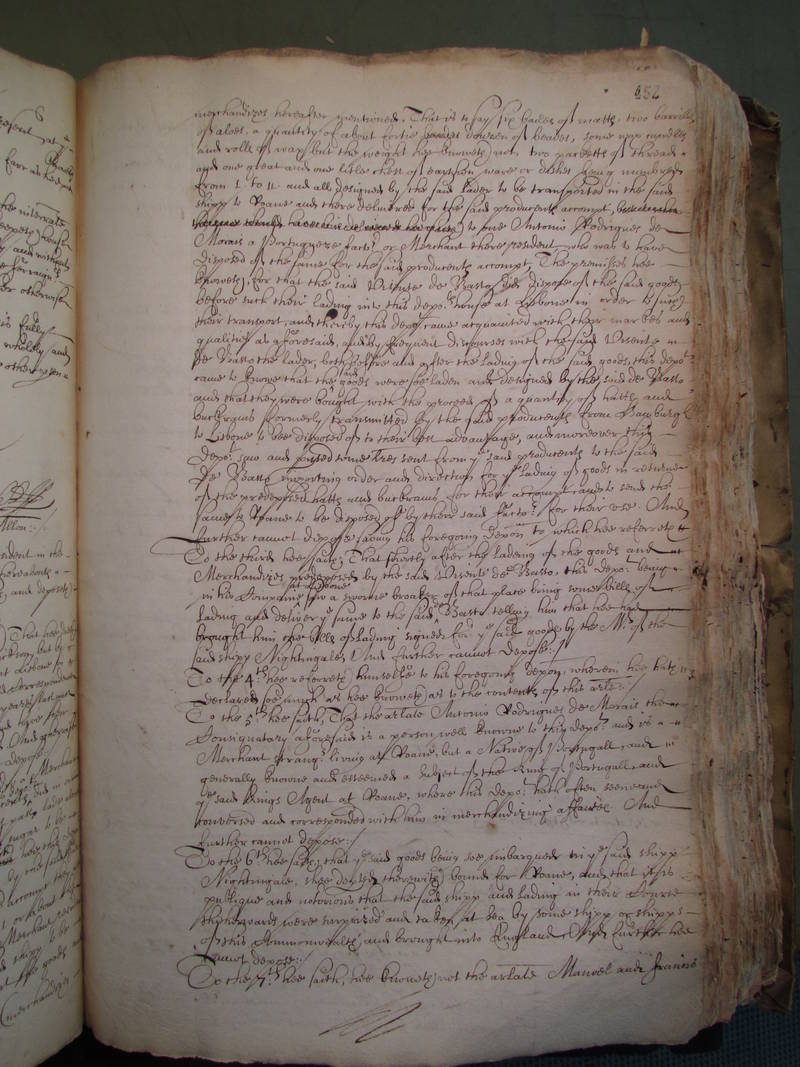 452
merchandizes hereafter mentioned. That is to say six bailes of matts, two barrills
of aloes, a quantity of about fortie dowzen of beades, some wax candles
and rolls of wax but the weight hee knoweth not, two parcells of thread
and one great and one litle chest of earthen ware or dishes being numbred
from 1 to 11 and all designed by the said lader to be transported in the said
shipp to Roane and there delivered for the said producents accompt,
to one Antonio Rodrigues de
Morais a Portuguese factor or Merchant there resident, who was to have
disposed of the same for the said producents accompt, The premisses hee
knoweth, for that the said Vicente de Basto did dispose of the said goods
before such their lading into this deponents house at Lisbone in order to such
their transport, and thereby this depot came acquainted with their markes and
qualities as aforesaid, and by frequent discourses with the said Vicente
de Basto the lader, both before and after the lading of the said goods, this depot
came to knowe that the said goods were soe laden and designed by the said de Basto
and that they were bought with the proceeds of a quantity of hatts and
buckrams formerly transmitted by the said producents from Hamburgh
to Lisbone to bee disposed of to their best advantage, and moreover this
depot saw and some letters sent from ye said producents to the said
De Basto importing order and direction for ye lading of goods in returne
of the predeposed hatts and buckrams for their account and to send the
same to Roane to be disposed of by their said factor for their use. And
further cannot depose saving his foregoing deposition to which hee referreth
To the third hee saith, That shortly after the lading of the goods and
Merchandizes predeposed by the said Vicente de Basto, this depot being
in his Companie at Lisbone saw a sworne broaker of that place bring some bills of
lading and deliver ye same to the said de Basto telling him that hee had
brought him the bills of lading signed for ye said goods by the Mr of the
said shipp Nightingale, And further cannot depose:/
To the 4th hee referreth himselfe to his foregoing deposition, wherein hee hath
declared soe much as hee knoweth as to the contents of this arlate:/
To the 5th hee saith, That the arlate Antonio Rodrigues de Morais, the
Consignatary aforesaid is a person well knowne to this depot and is a
Merchant stranger living at Roane, but a Native of Portugall, and
generally knowne and esteemed a subject of the King of Portugall, and
ye said Kings Agent at Roane, where this depot hath often seene and
conversed and corresponded with him in merchandizing affaires. And
further cannot depose:/
To the 6th hee saith, that ye said goods being soe imbarqued in ye said shipp
Nightingale, shee departed therewith bound for Roane, and that it is
publique and notorious that the said shipp and lading in their Course
thitherwards were surprised and taken at sea by some shipp or shipps
of this Commonwealth, and brought into England And further hee
cannot depose:/
To the 7th hee saith, hee knoweth not the arlate Manoel and Francis